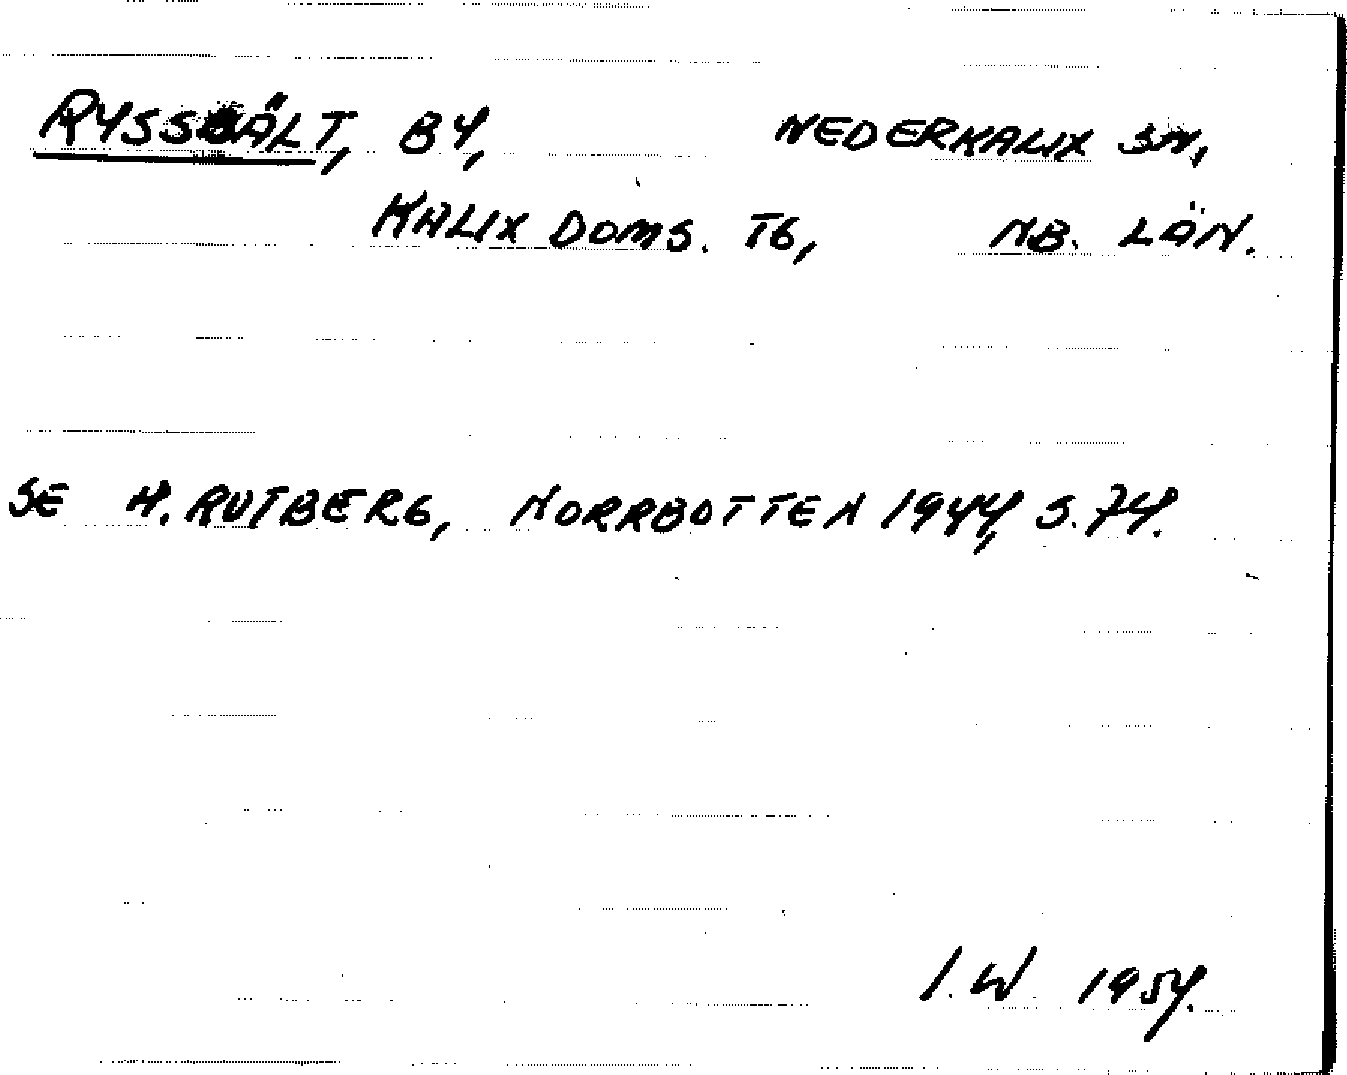 RYSSBÄLT, BY, NEDERKALIX SN,
KALIX DOMS. TG, NB. LÄN.
SE H. RUTBERG, NORRBOTTEN 1944, S. 74.
I. W 1954.